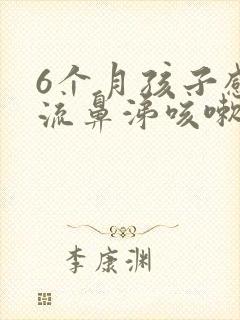 6个月孩子感
流鼻涕咳嗽
李康渊